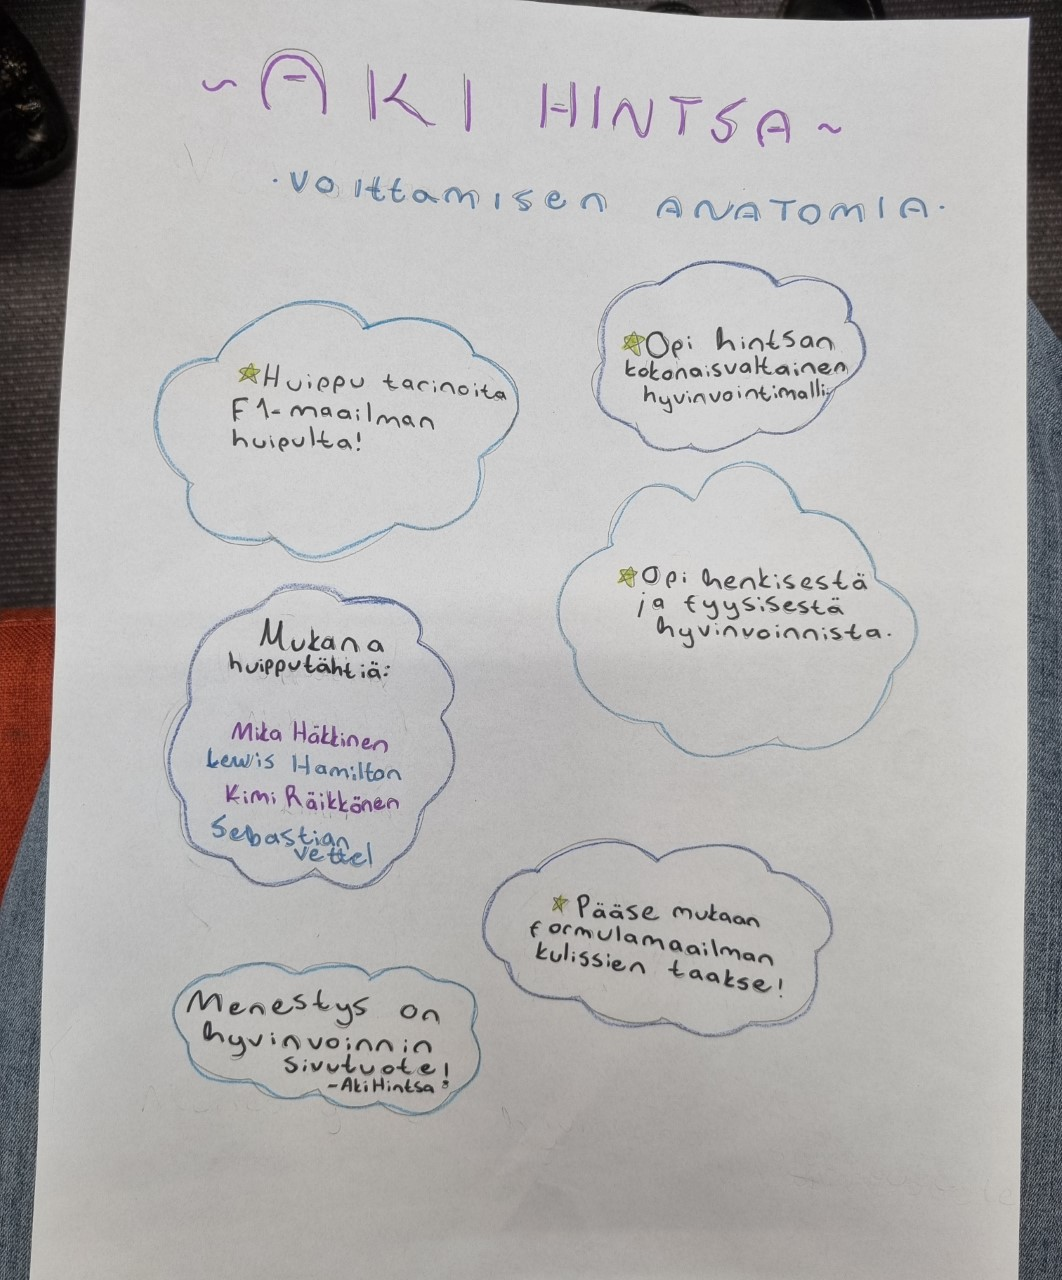 ~AKI HINTSA~
·Voittamisen ANATOMIA·
Huippu tarinoita
F1-maailman
huipulta!
Opi hintsan
kokonaisvaltainen
hyvinvointimalli.
Opi henkisestä
ja fyysisestä
hyvinvoinnista.
Mukana
huipputähtiä:
Mika Häkkinen
Lewis Hamilton
Kimi Räikkönen
Sebastian
vettel
Pääse mukaan
formulamaailman
kulissien taakse!
Menestys on
hyvinvoinnin
sivutuote!
-Aki Hintsa